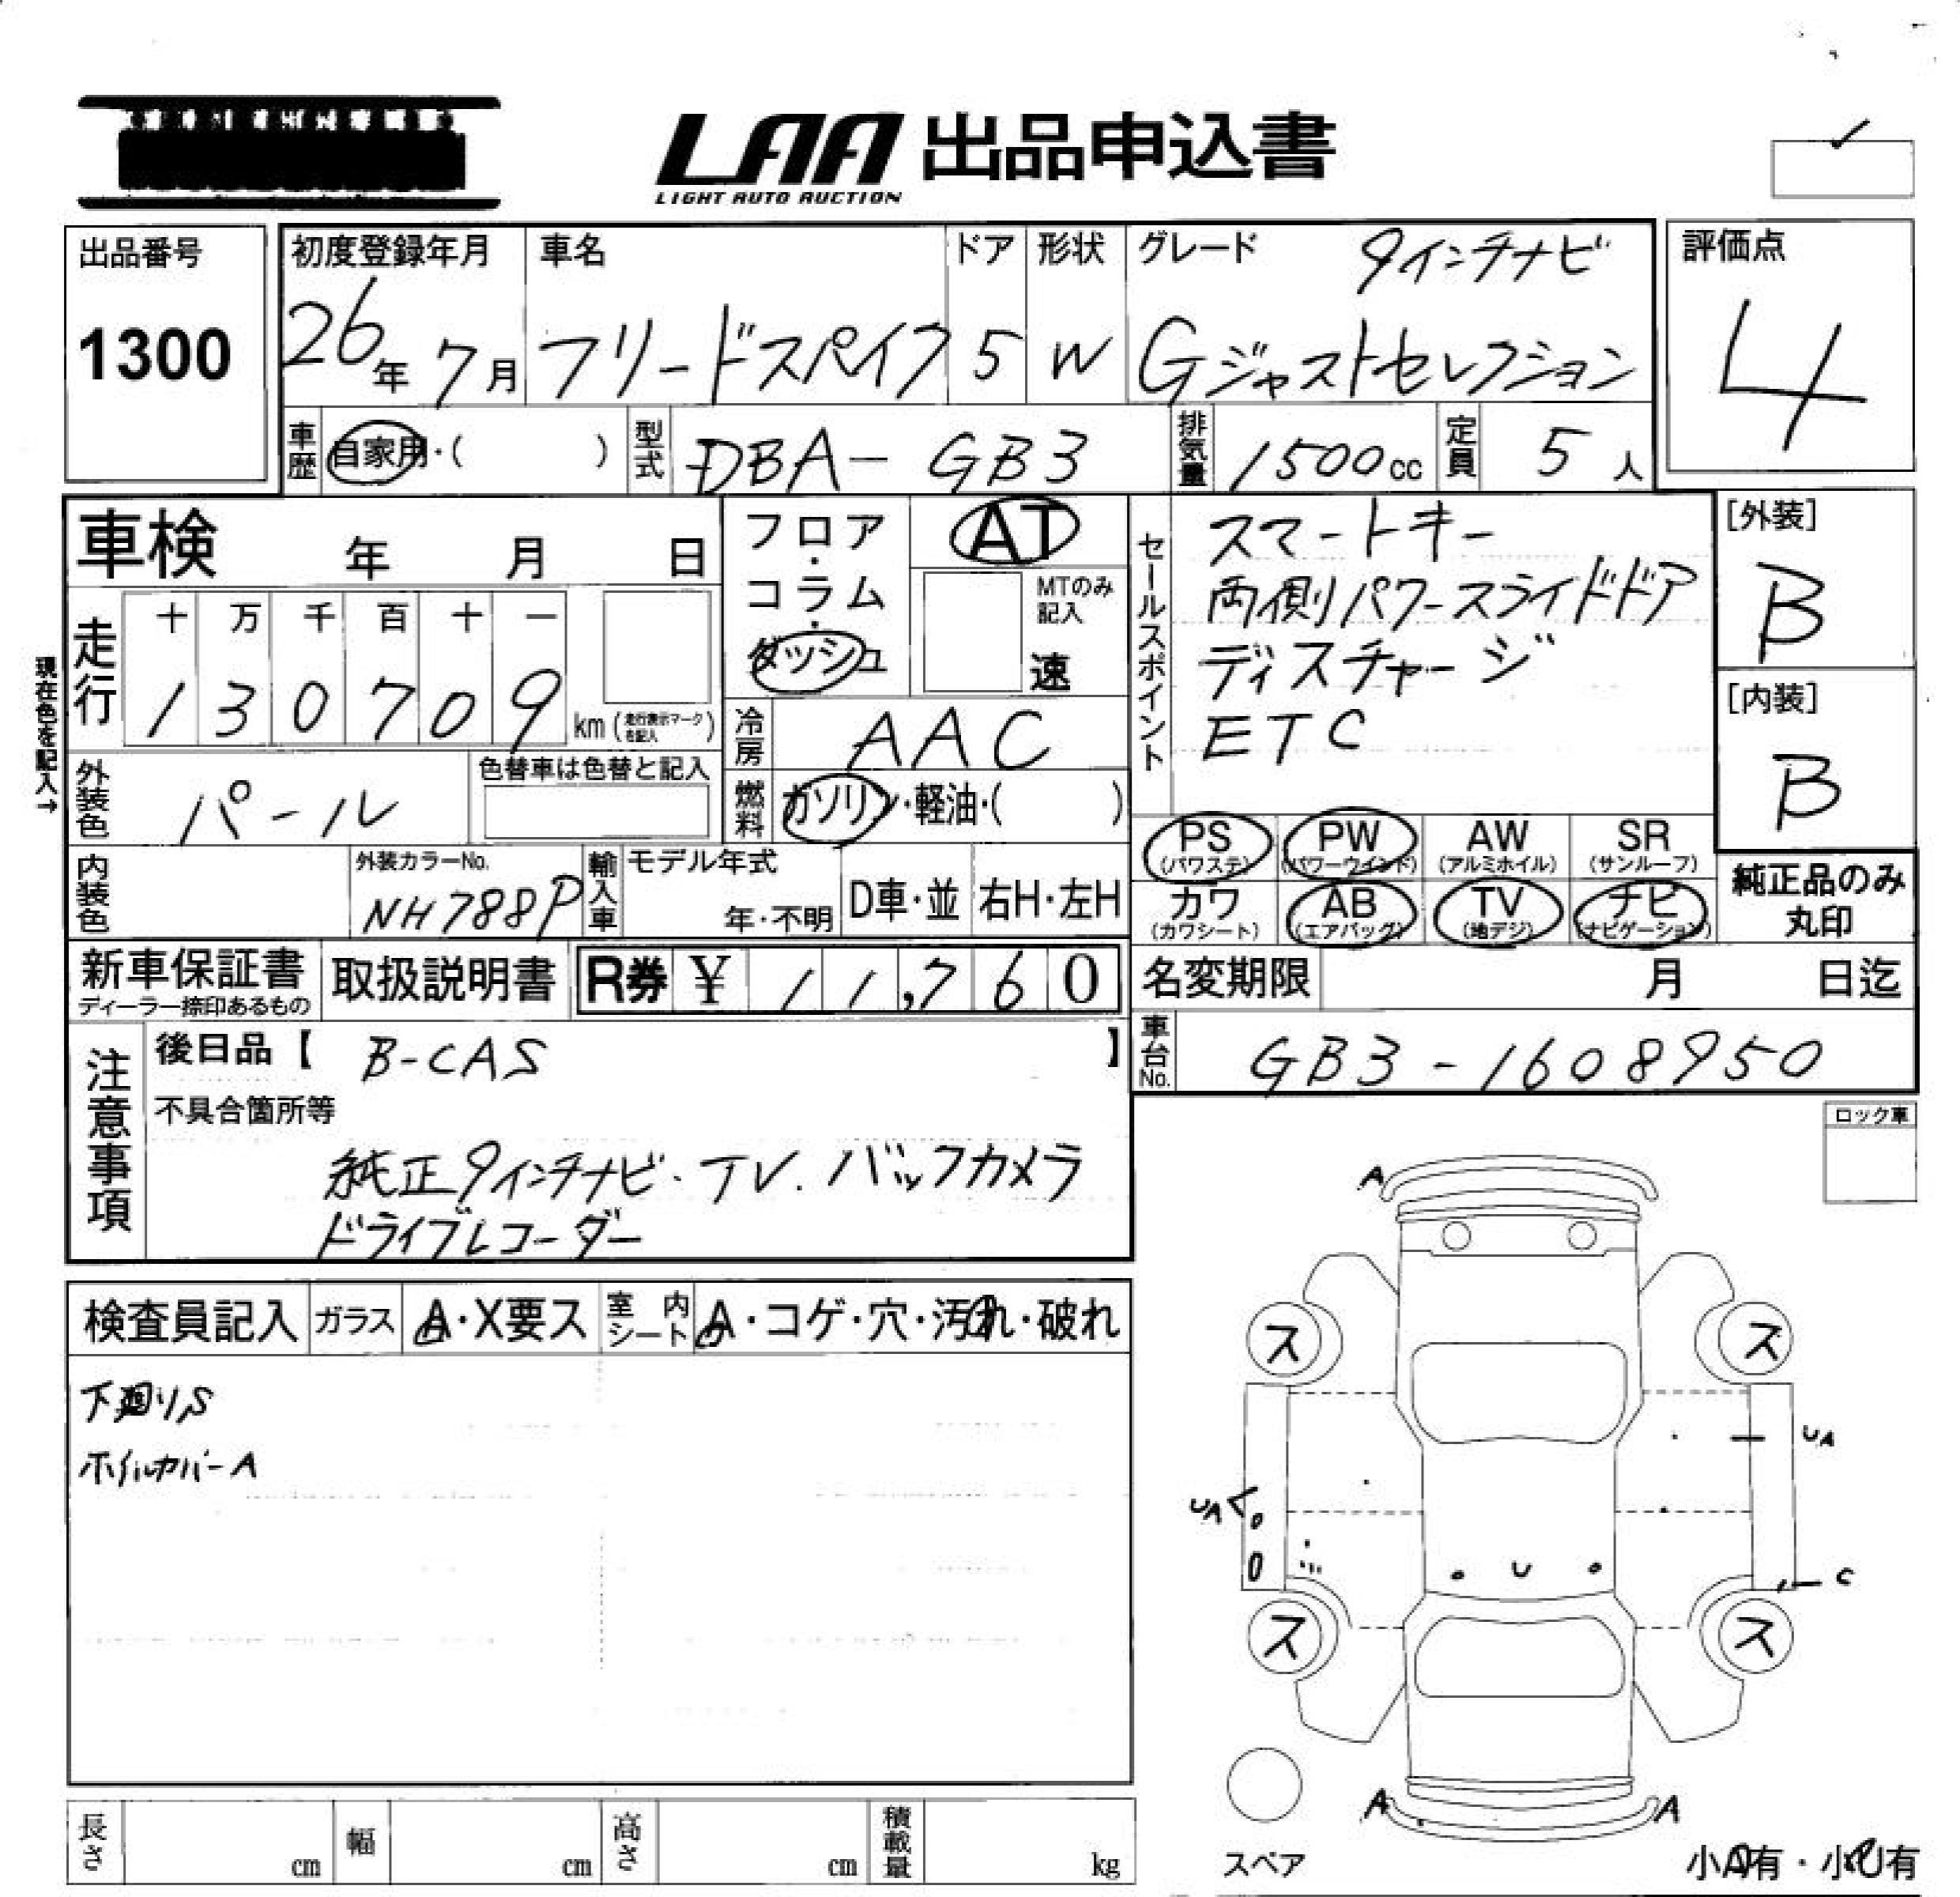 LAA 出品申込書
LIGHT AUTO AUCTION
出品番号
1300
初度登録年月
26年 7月
車名
フリードスパイク
ドア
5
形状
W
グレード
9インチナビ
Gジャストセレクション
評価点
4
車歴 自家用・( )
型式 DBA-GB3
排気量 1500cc
定員 5人
車検 年 月 日
フロア・コラム・ダッシュ
AT
MTのみ記入
速
セールスポイント
スマートキー
両側パワースライドドア
ディスチャージ
ETC
[外装]
B
[内装]
B
現在色を記入→
走行
十 万 千 百 十 一
1 3 0 7 0 9 km (走行表示マークを記入)
冷房 AAC
外装色 パール
色替車は色替と記入
燃料 ガソリン・軽油・( )
PS (パワステ)
PW (パワーウインド)
AW (アルミホイル)
SR (サンルーフ)
カワ (カワシート)
AB (エアバッグ)
TV (地デジ)
ナビ (ナビゲーション)
純正品のみ丸印
内装色
外装カラーNo.
NH788P
輸入車
モデル年式
年・不明
D車・並
右H・左H
新車保証書
ディーラー捺印あるもの
取扱説明書
R券 ¥ 11,760
名変期限 月 日迄
車台No. GB3-1608950
注意事項
後日品【 B-CAS 】
不具合箇所等
純正9インチナビ・TV.バックカメラ
ドライブレコーダー
ロック車
検査員記入
ガラス A・X要ス
室内シート A・コゲ・穴・汚れ・破れ
下廻りS
ホイルカバーA
A
ス ス
UA
UA
U
C
ス ス
A A
スペア
小A有・小U有
長さ cm
幅 cm
高さ cm
積載量 kg